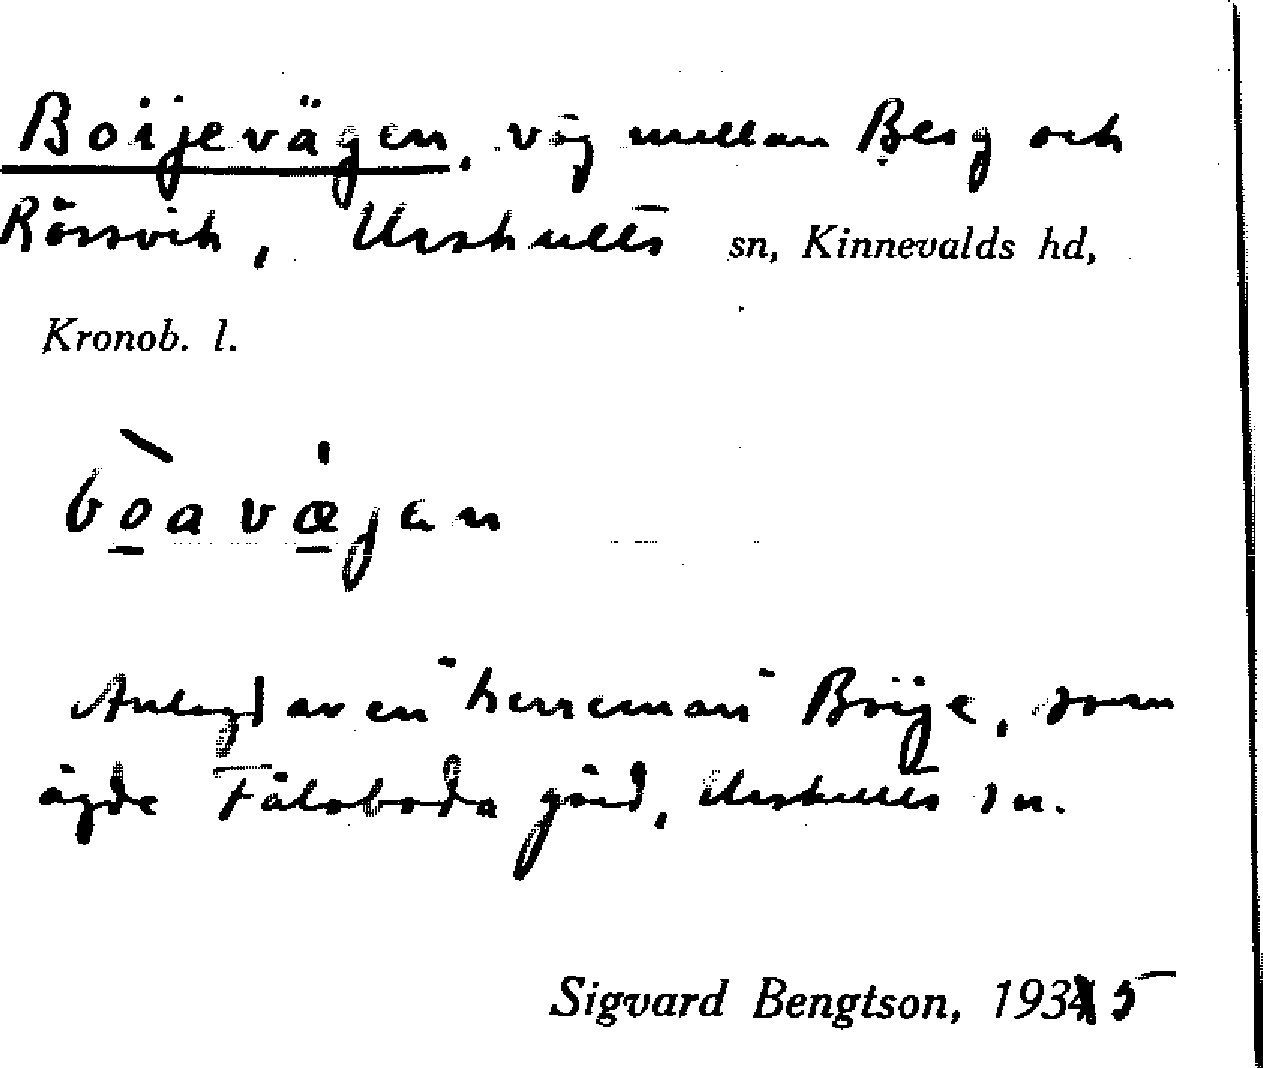 Boijevägen, väg mellan Berg och
Rössvik, Urshults sn, Kinnevalds hd,
Kronob. l.
bòa væjen
Anlagd av en "herreman" Boije, som
ägde Fåloboda gård, Urshults sn.
Sigvard Bengtson, 1935